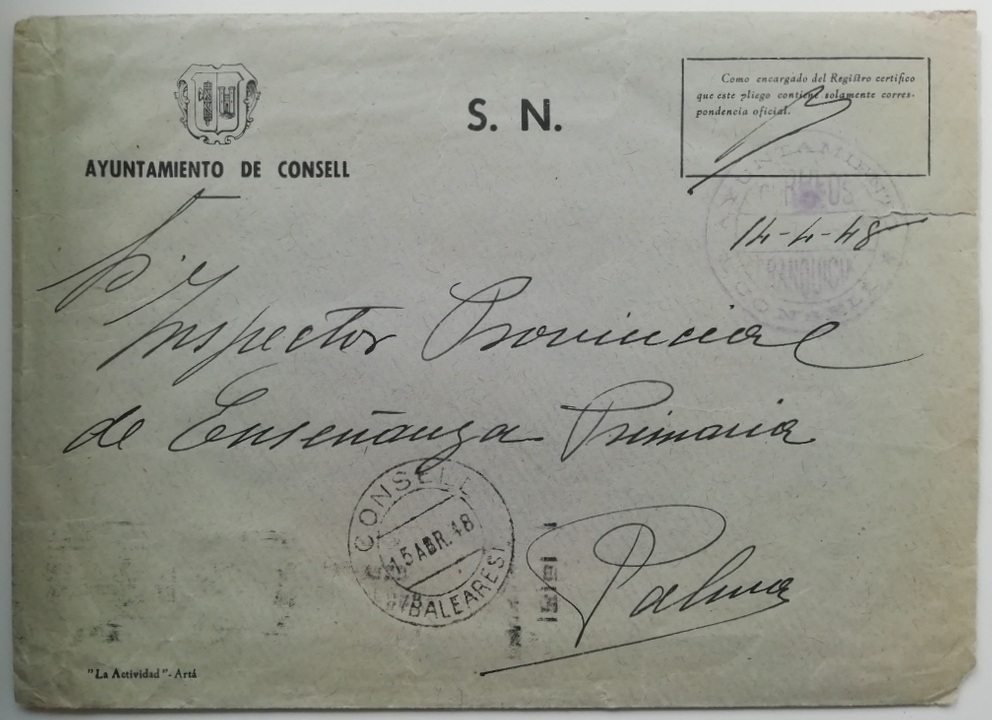 AYUNTAMIENTO DE CONSELL
S. N.
Como encargado del Registro certifico
que este pliego contiene solamente corres-
pondencia oficial.
AYUNTAMIENTO
CORREOS
FRANQUICIA
CONSELL
14-4-48
Sr. Inspector Provincial
de Enseñanza Primaria
Palma
CONSELL
15 ABR. 48
(BALEARES)
"La Actividad"-Artá